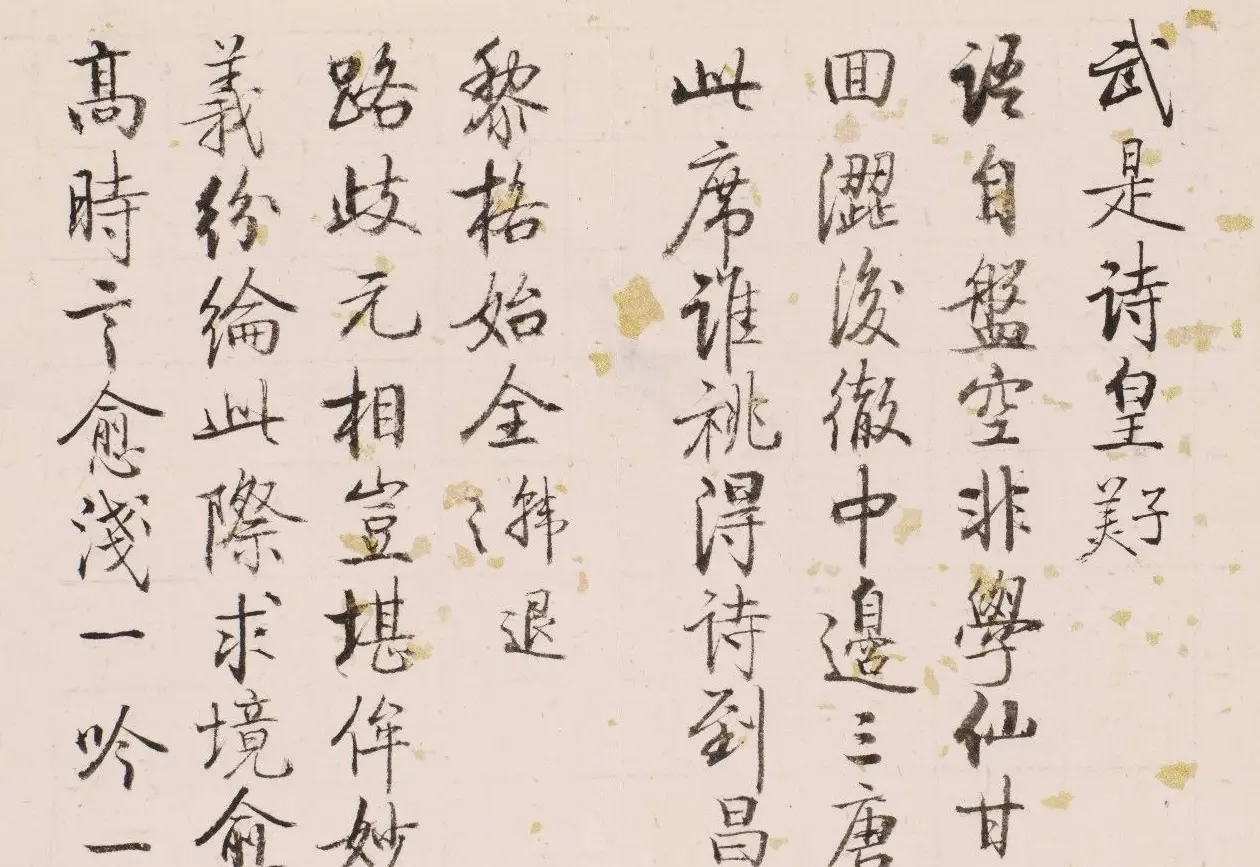 武是诗皇子美
語自盤空非學仙甘
囬澀後徹中邊三唐
此席誰祧得诗到昌
黎格始全韩退之
路歧元相豈堪侔妙
義紛綸此際求境愈
高時言愈淺一吟一